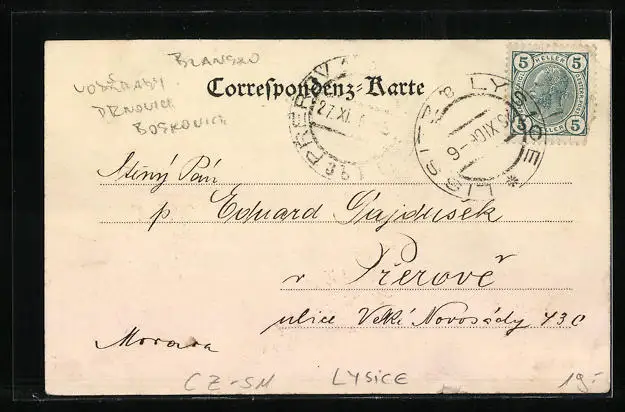 BLANSKO
VODĚRADY
DRNOVICE
BOSKOVICE
Correspondenz-Karte
PREROV
27.XI.
LISSITZ * LYSICE
5 HELLER 5
5 HELLER 5
Slovutný Pán
p. Eduard Gajdusek
v Přerově
ulice Velké Novosády
Morava
CZ-SM
LYSICE
19.-